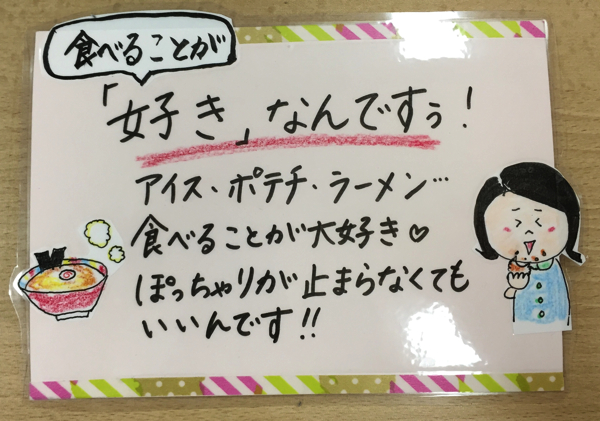 食べることが
「好き」なんですぅ!
アイス・ポテチ・ラーメン…
食べることが大好き♡
ぽっちゃりが止まらなくても
いいんです!!